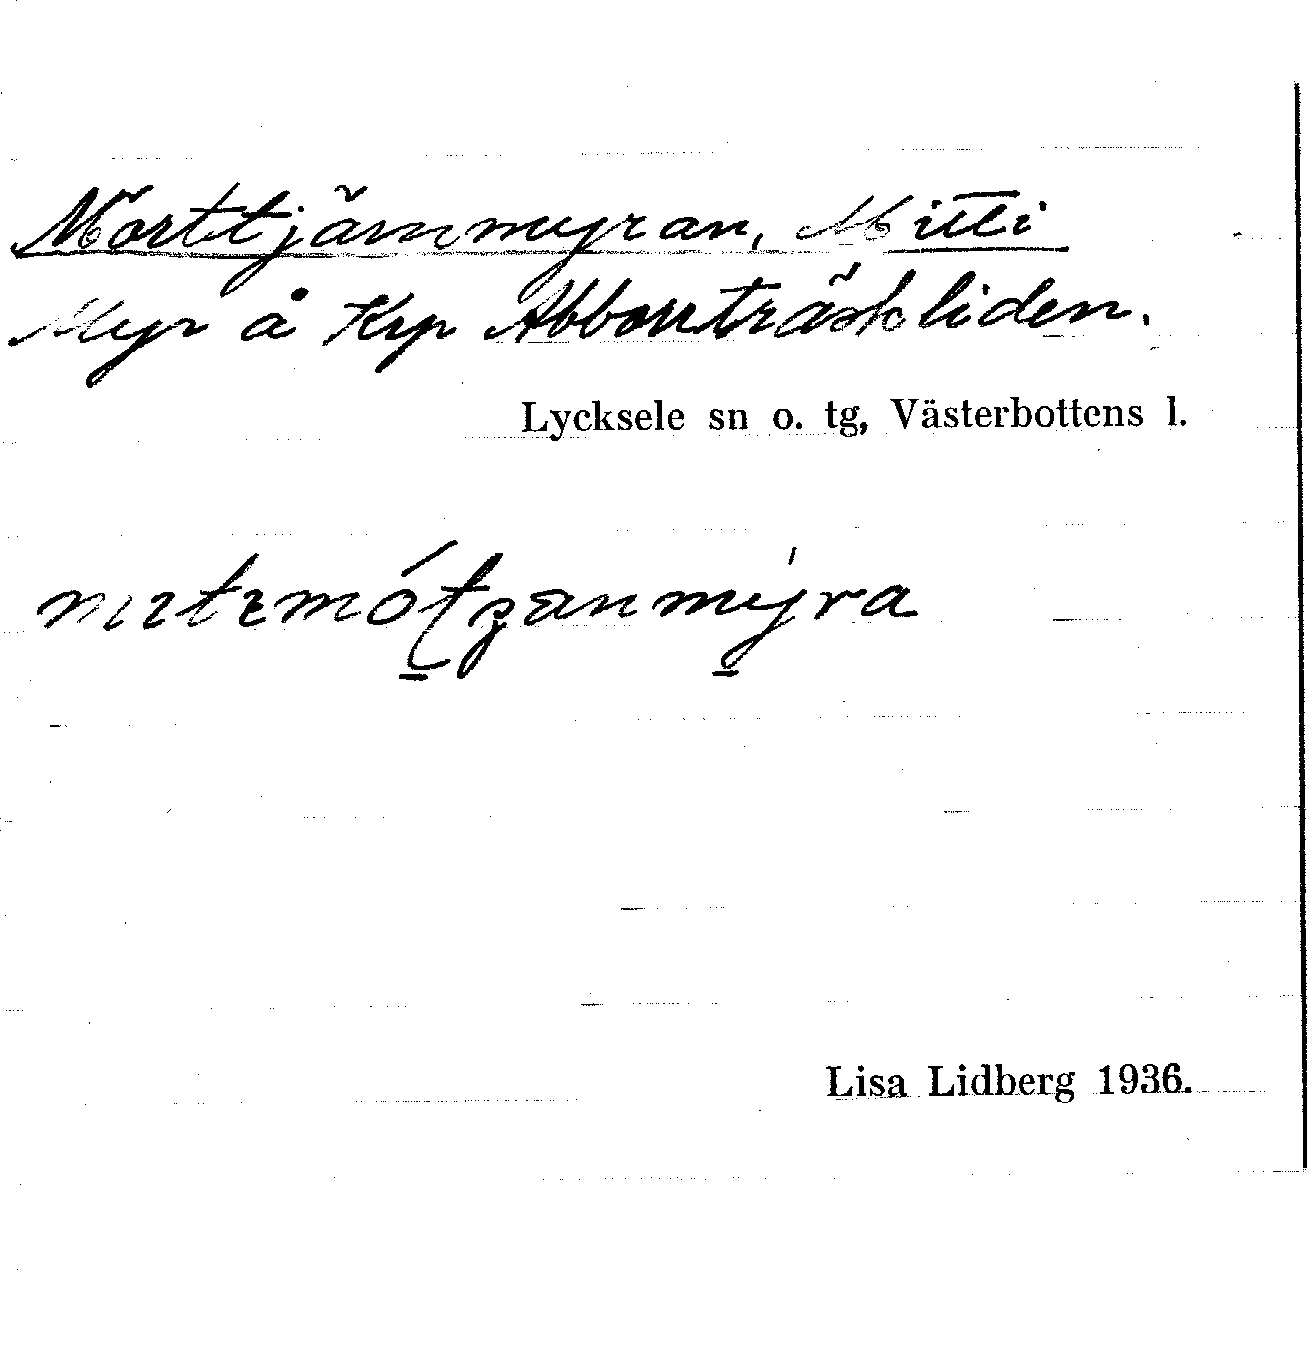 Mörttjärnmyran, Mitti
Myr å Krp Abborrträskliden.
Lycksele sn o. tg, Västerbottens l.
Lisa Lidberg 1936.